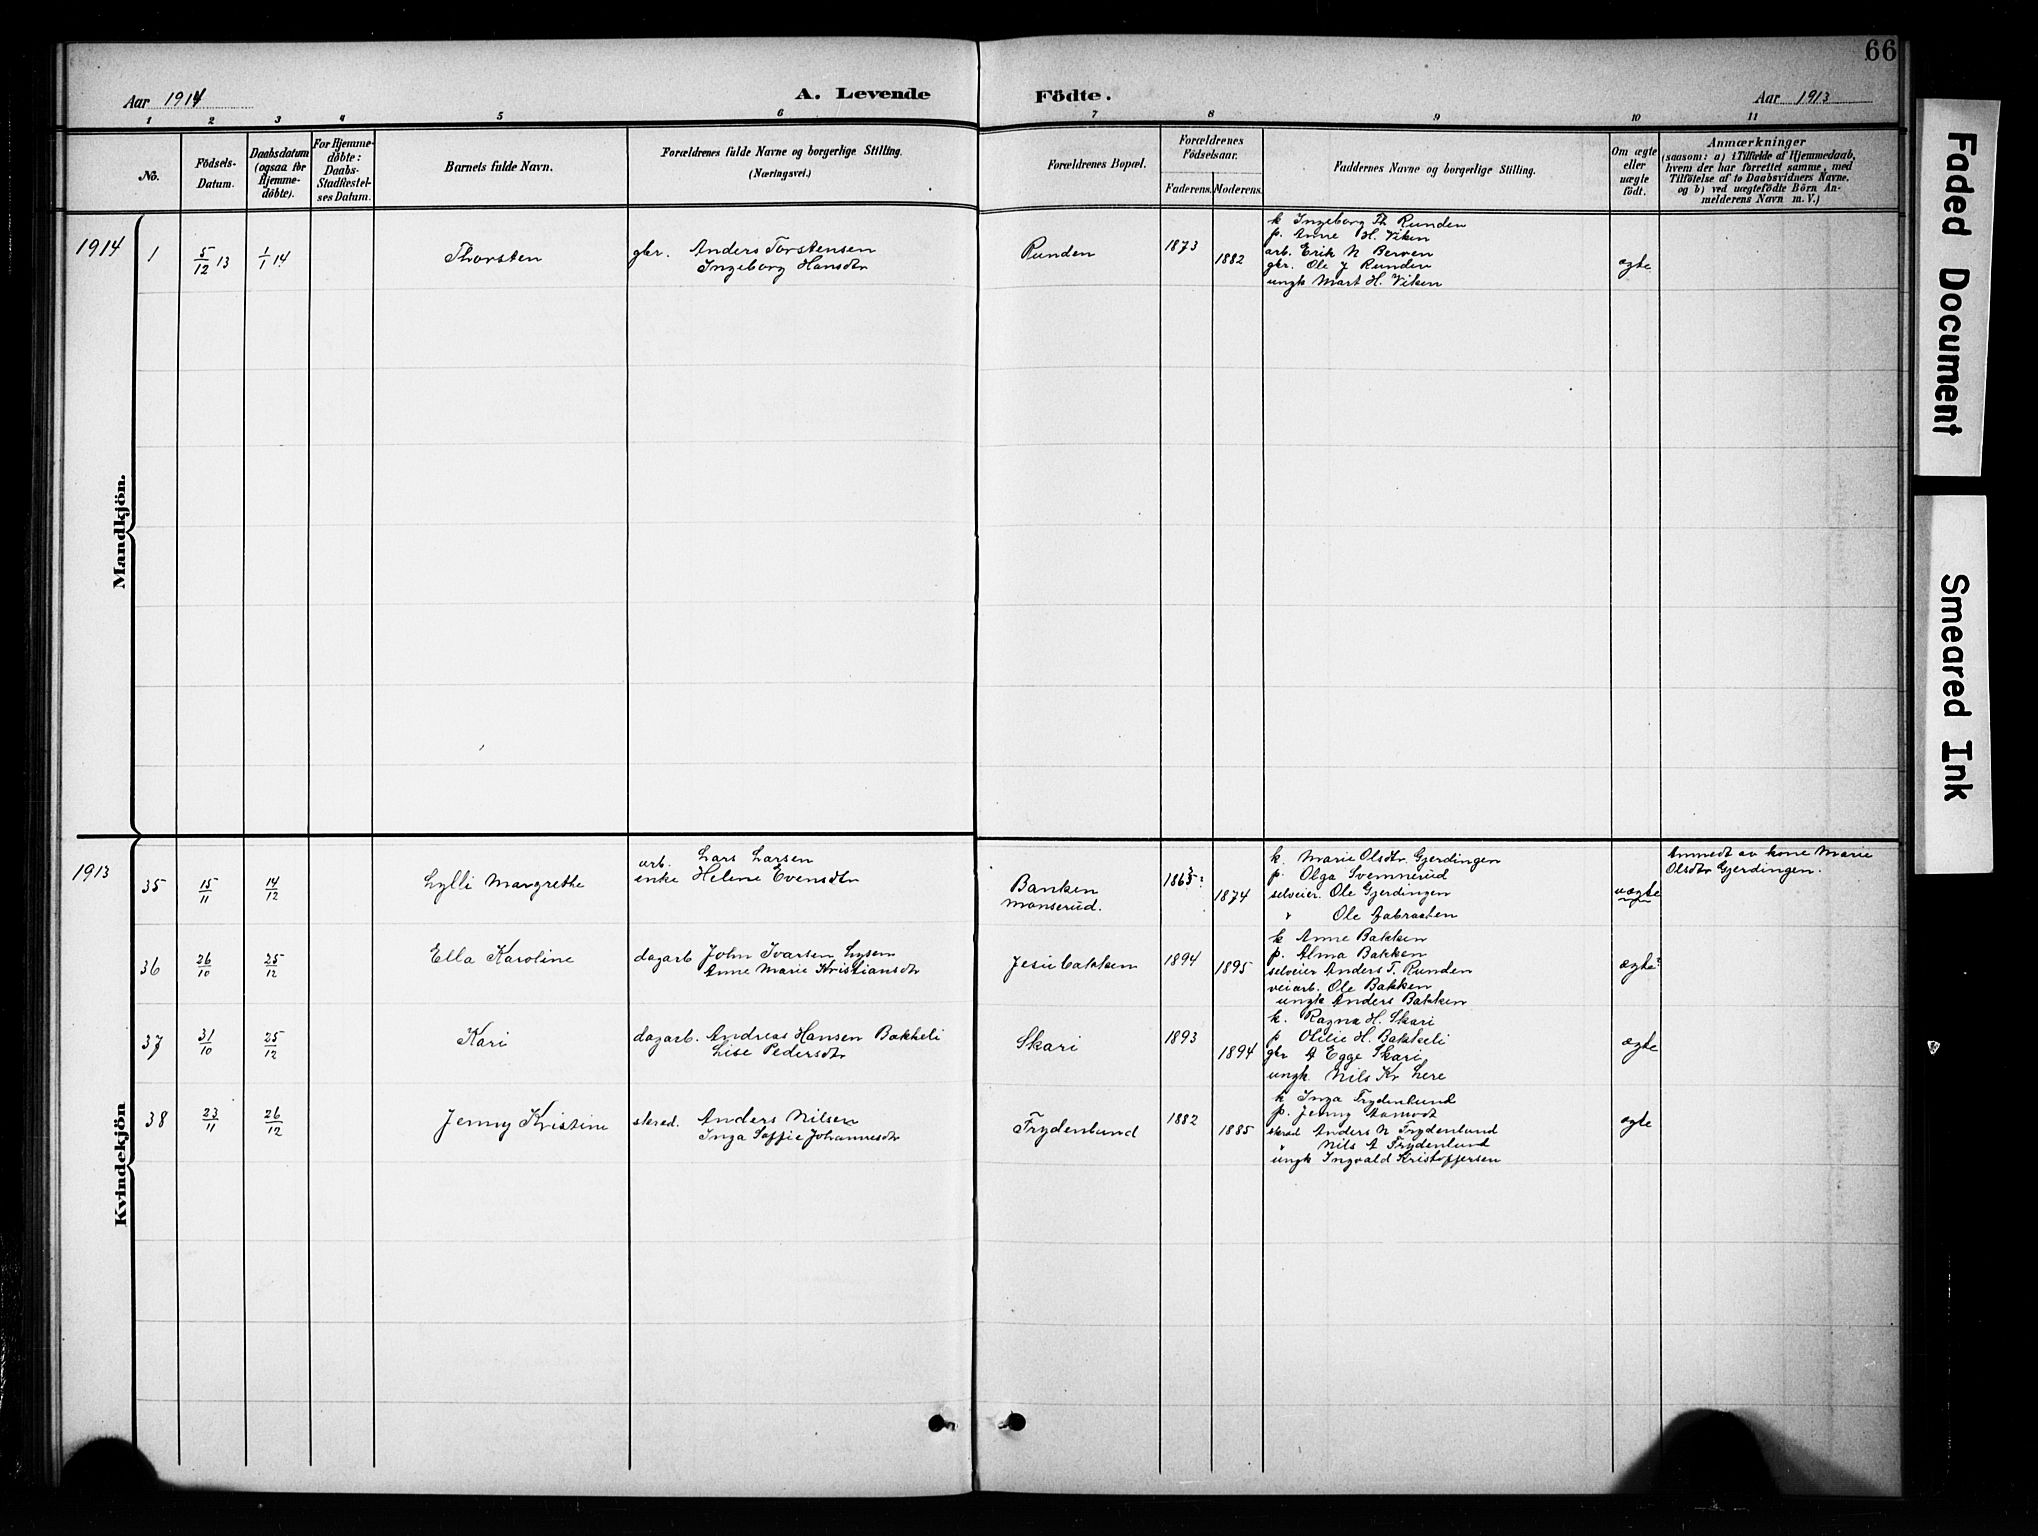 66
Aar 1914
A. Levende
Födte.
Aar 1913
1 2 3 4 5 6 7 8 9 10 11
No.
Födsels-
Datum.
Daabsdatum
(ogsaa for
Hjemme-
döbte).
For Hjemme-
döbte:
Daabs-
Stadfæstel-
ses Datum.
Barnets fulde Navn.
Forældrenes fulde Navne og borgerlige Stilling.
(Næringsvei.)
Forældrenes Bopæl.
Forældrenes
Födselsaar.
Faderens. Moderens.
Faddernes Navne og borgerlige Stilling.
Om ægte
eller
uægte
födt.
Anmærkninger
(saasom: a) i Tilfælde af Hjemmedaab,
hvem der har forrettet samme, med
Tilföielse af to Daabsvidners Navne,
og b) ved uægtefödte Börn An-
melderens Navn m. V.)
Mandkjön.
1914
1
5/12 13
1/1 14
Thorsten
gbr. Anders Torstensen
Ingeborg Hansdtr
Runden
1873
1882
k Ingeborg Th. Runden
p. Anne H. Viken
arb. Erik N Berven
gbr. Ole J Runden
ungk Mart H. Viken
ægte
Kvindekjön
1913
35
15/11
14/12
Lylli Margrethe
arb. Lars Larsen
enke Helene Evensdtr
Banken
Monserud.
1874
k. Marie Olsdtr. Gjerdingen
p. Olga Svennerud
selveier. Ole Gjerdingen
" Ole Aabraaten
uægte
Anmedt av kone Marie
Olsdtr Gjerdingen.
36
26/10
25/12
Ella Karoline
dagarb John Ivarsen Lysen
Anne Marie Kristiansdtr
Jesubakken
1894
1895
k Anne Bakken
p. Alma Bakken
selveier Anders T. Runden
veiarb. Ole Bakken
ungk Anders Bakken
ægte?
37
31/10
25/12
Kari
dagarb. Andreas Hansen Bakkeli
Lise Pedersdtr
Skari
1893
1894
k. Ragna H. Skari
p Otilie H. Bakkeli
gbr A Egge Skari
ungk. Nils Kr Lere
ægte
38
23/11
26/12
Jenny Kristine
skred. Anders Nilsen
Inga Soffie Johannesdtr
Frydenlund
1882
1885
k Inga Frydenlund
p. Jenny Aamodt
skred Anders N Frydenlund
" Nils A Frydenlund
ungk Ingvald Kristoffersen
ægte
Faded Document
Smeared Ink